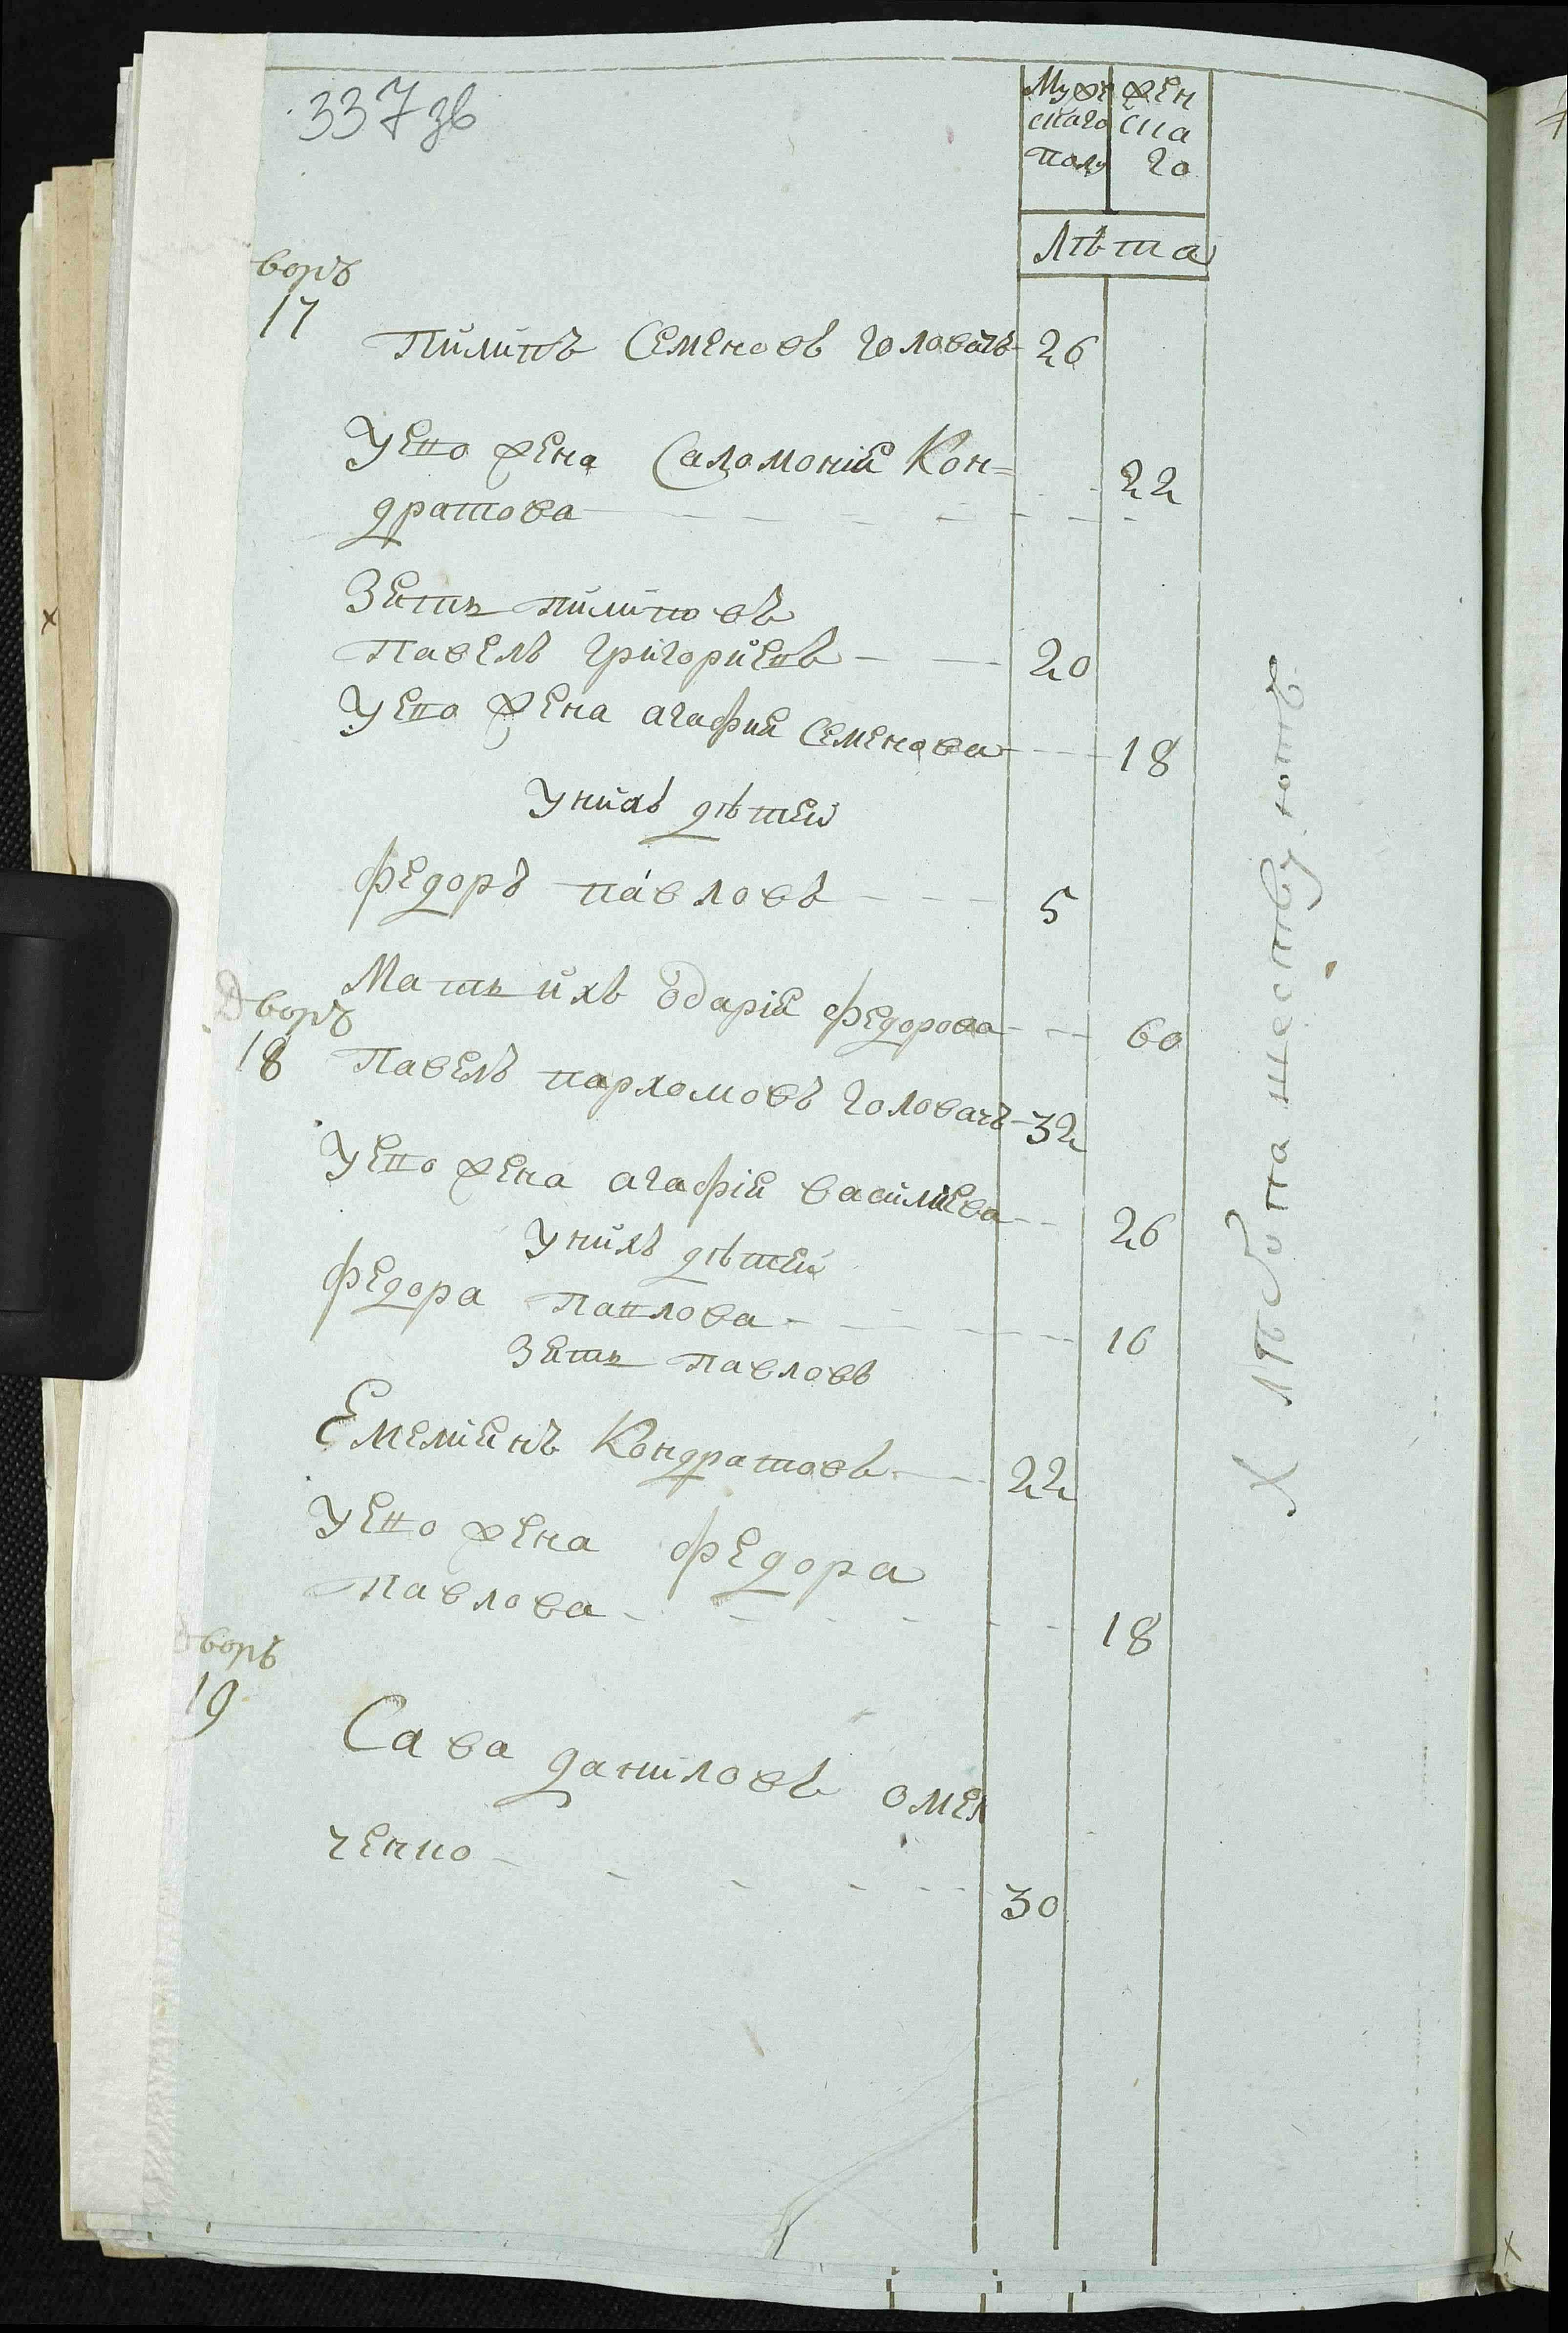 337 зв
Мужескаго полу
женскаго
лѣта
дворъ
17
пилипъ Семеновъ головачъ 26
У его жена Саломонія Кон=
дратова 22
Зять пилиповъ
павелъ григориевъ 20
У его жена агафия Семенова 18
У нихъ дѣтей
федоръ павловъ 5
Мать ихъ одарія федорова 60
Дворъ
18
павелъ пархомовъ головачъ 32
У его жена агафія василиева 26
У нихъ дѣтей
федора павлова 16
Зять павловъ
Емелиянъ Кондратовъ 22
У его жена федора
павлова 18
дворъ
19
Сава даниловъ омел
ченко 30